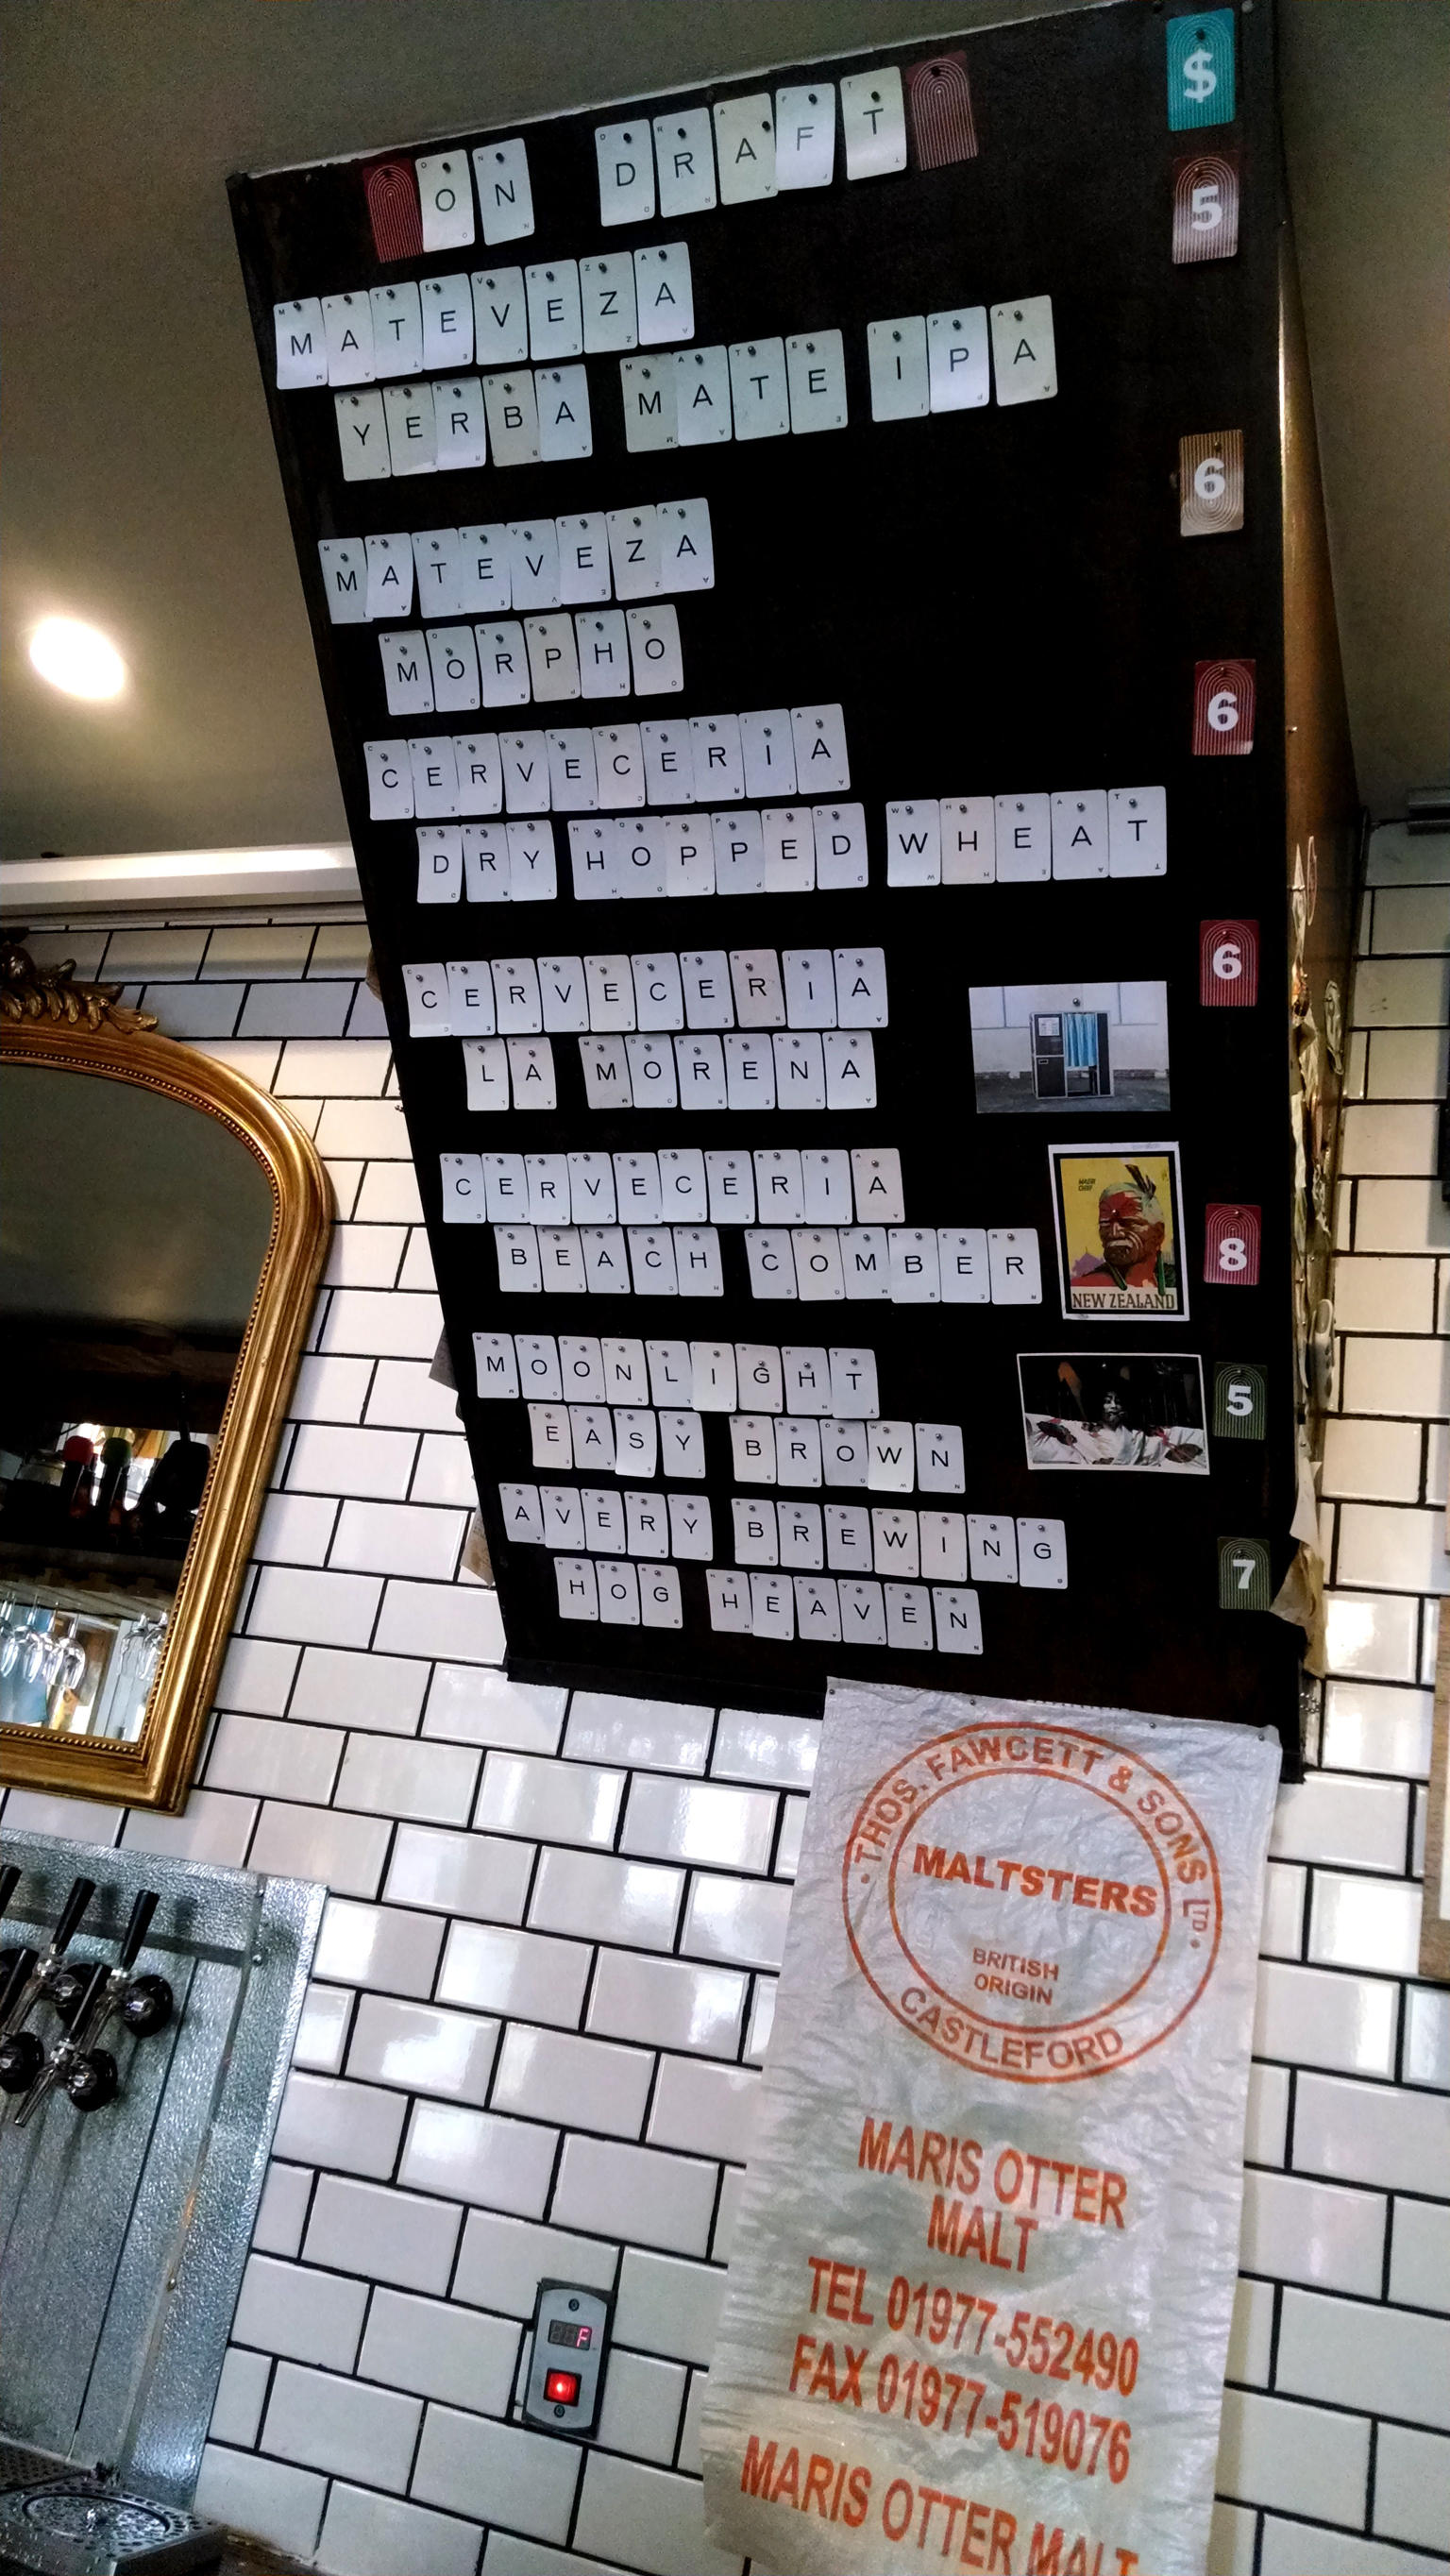 $
ON DRAFT
5
MATEVEZA
YERBA MATE IPA
6
MATEVEZA
MORPHO
6
CERVECERIA
DRY HOPPED WHEAT
6
CERVECERIA
LA MORENA
8
CERVECERIA
BEACH COMBER
NEW ZEALAND
5
MOONLIGHT
EASY BROWN
7
AVERY BREWING
HOG HEAVEN
THOS. FAWCETT & SONS LTD.
MALTSTERS
BRITISH
ORIGIN
CASTLEFORD
MARIS OTTER
MALT
TEL 01977-552490
FAX 01977-519076
MARIS OTTER MALT
F